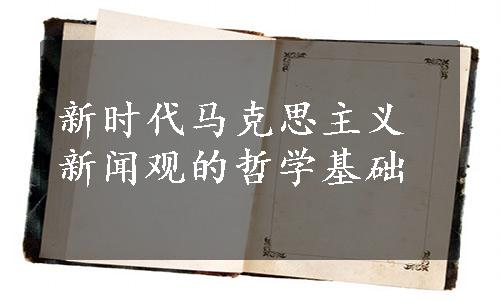 新时代马克思主义
新闻观的哲学基础